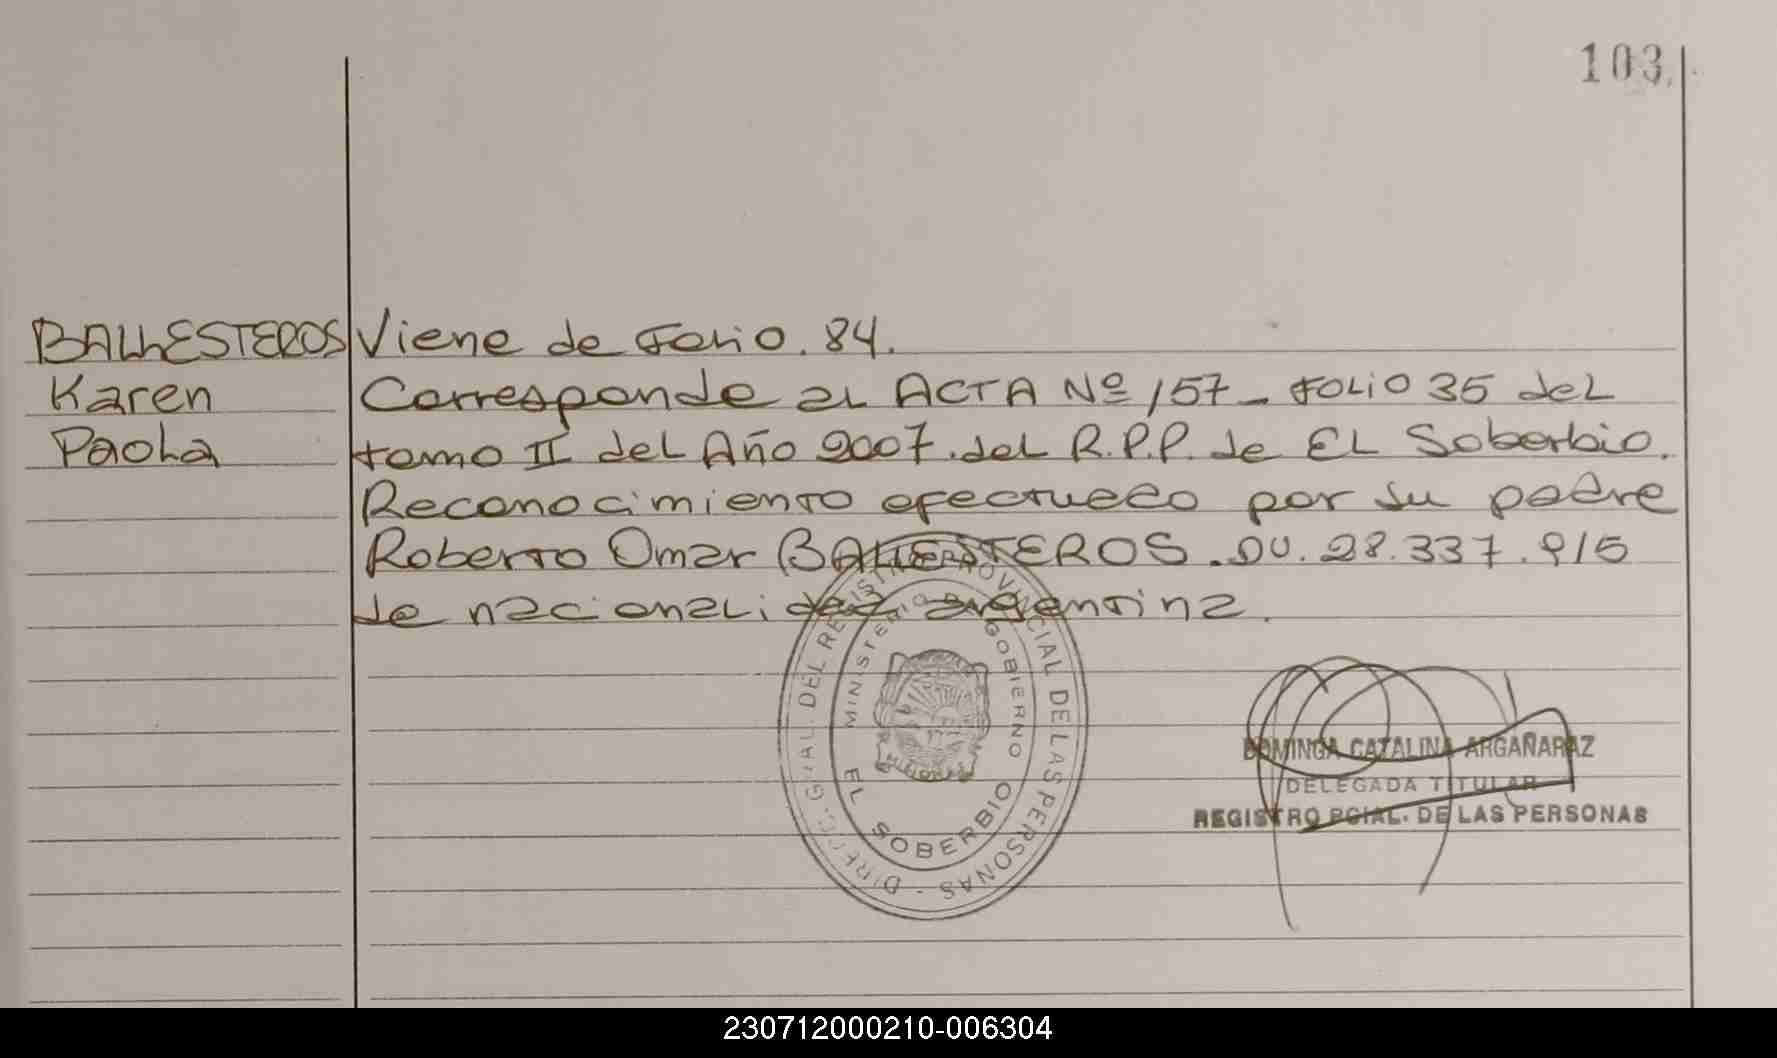 103
BALLESTEROS Viene de Folio. 84.
Karen Corresponde al ACTA Nº 157 - FOLIO 35 del
Paola tomo II del Año 2007. del R.P.P. de EL Soberbio.
Reconocimiento efectuado por su padre
Roberto Omar BALLESTEROS. DU. 28.337.915
de nacionalidad argentina.
DIREC. GRAL. DEL REGISTRO PROVINCIAL DE LAS PERSONAS -
MINISTERIO DE GOBIERNO
EL SOBERBIO
DOMINGA CATALINA ARGAÑARAZ
DELEGADA TITULAR
REGISTRO PCIAL. DE LAS PERSONAS
230712000210-006304